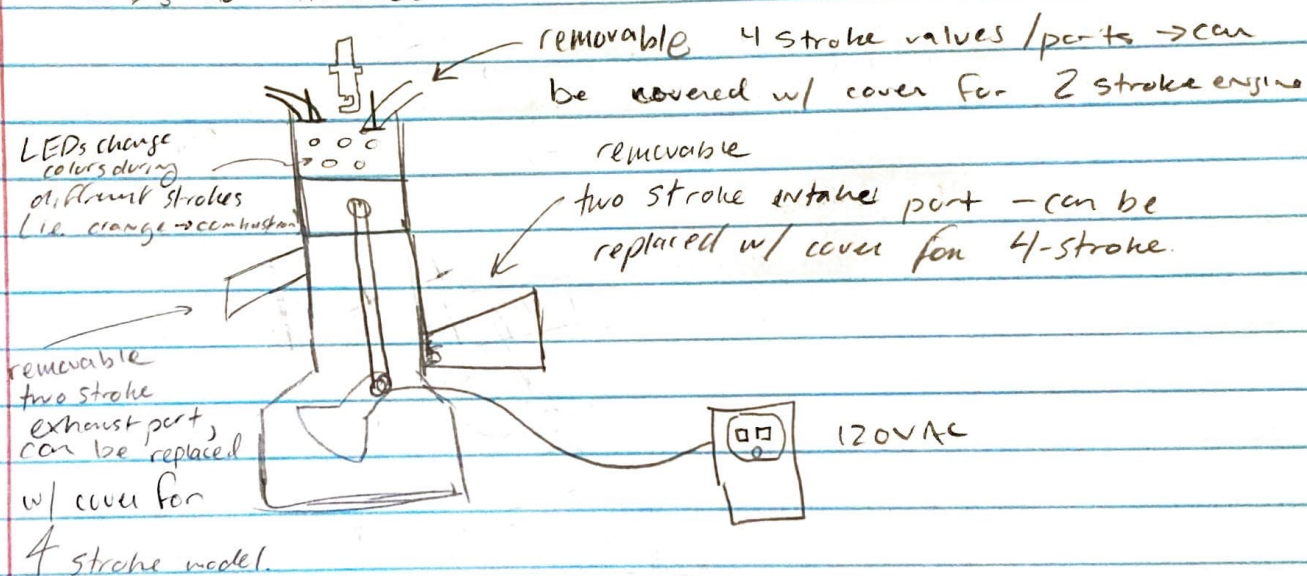 removable 4 stroke valves/ports → can
be covered w/ cover for 2 stroke engine
LEDs change
colors during
different strokes
(i.e. orange → combustion)
removable
two stroke intake port - can be
replaced w/ cover for 4-stroke.
removable
two stroke
exhaust port,
can be replaced
w/ cover for
4 stroke model.
120VAC